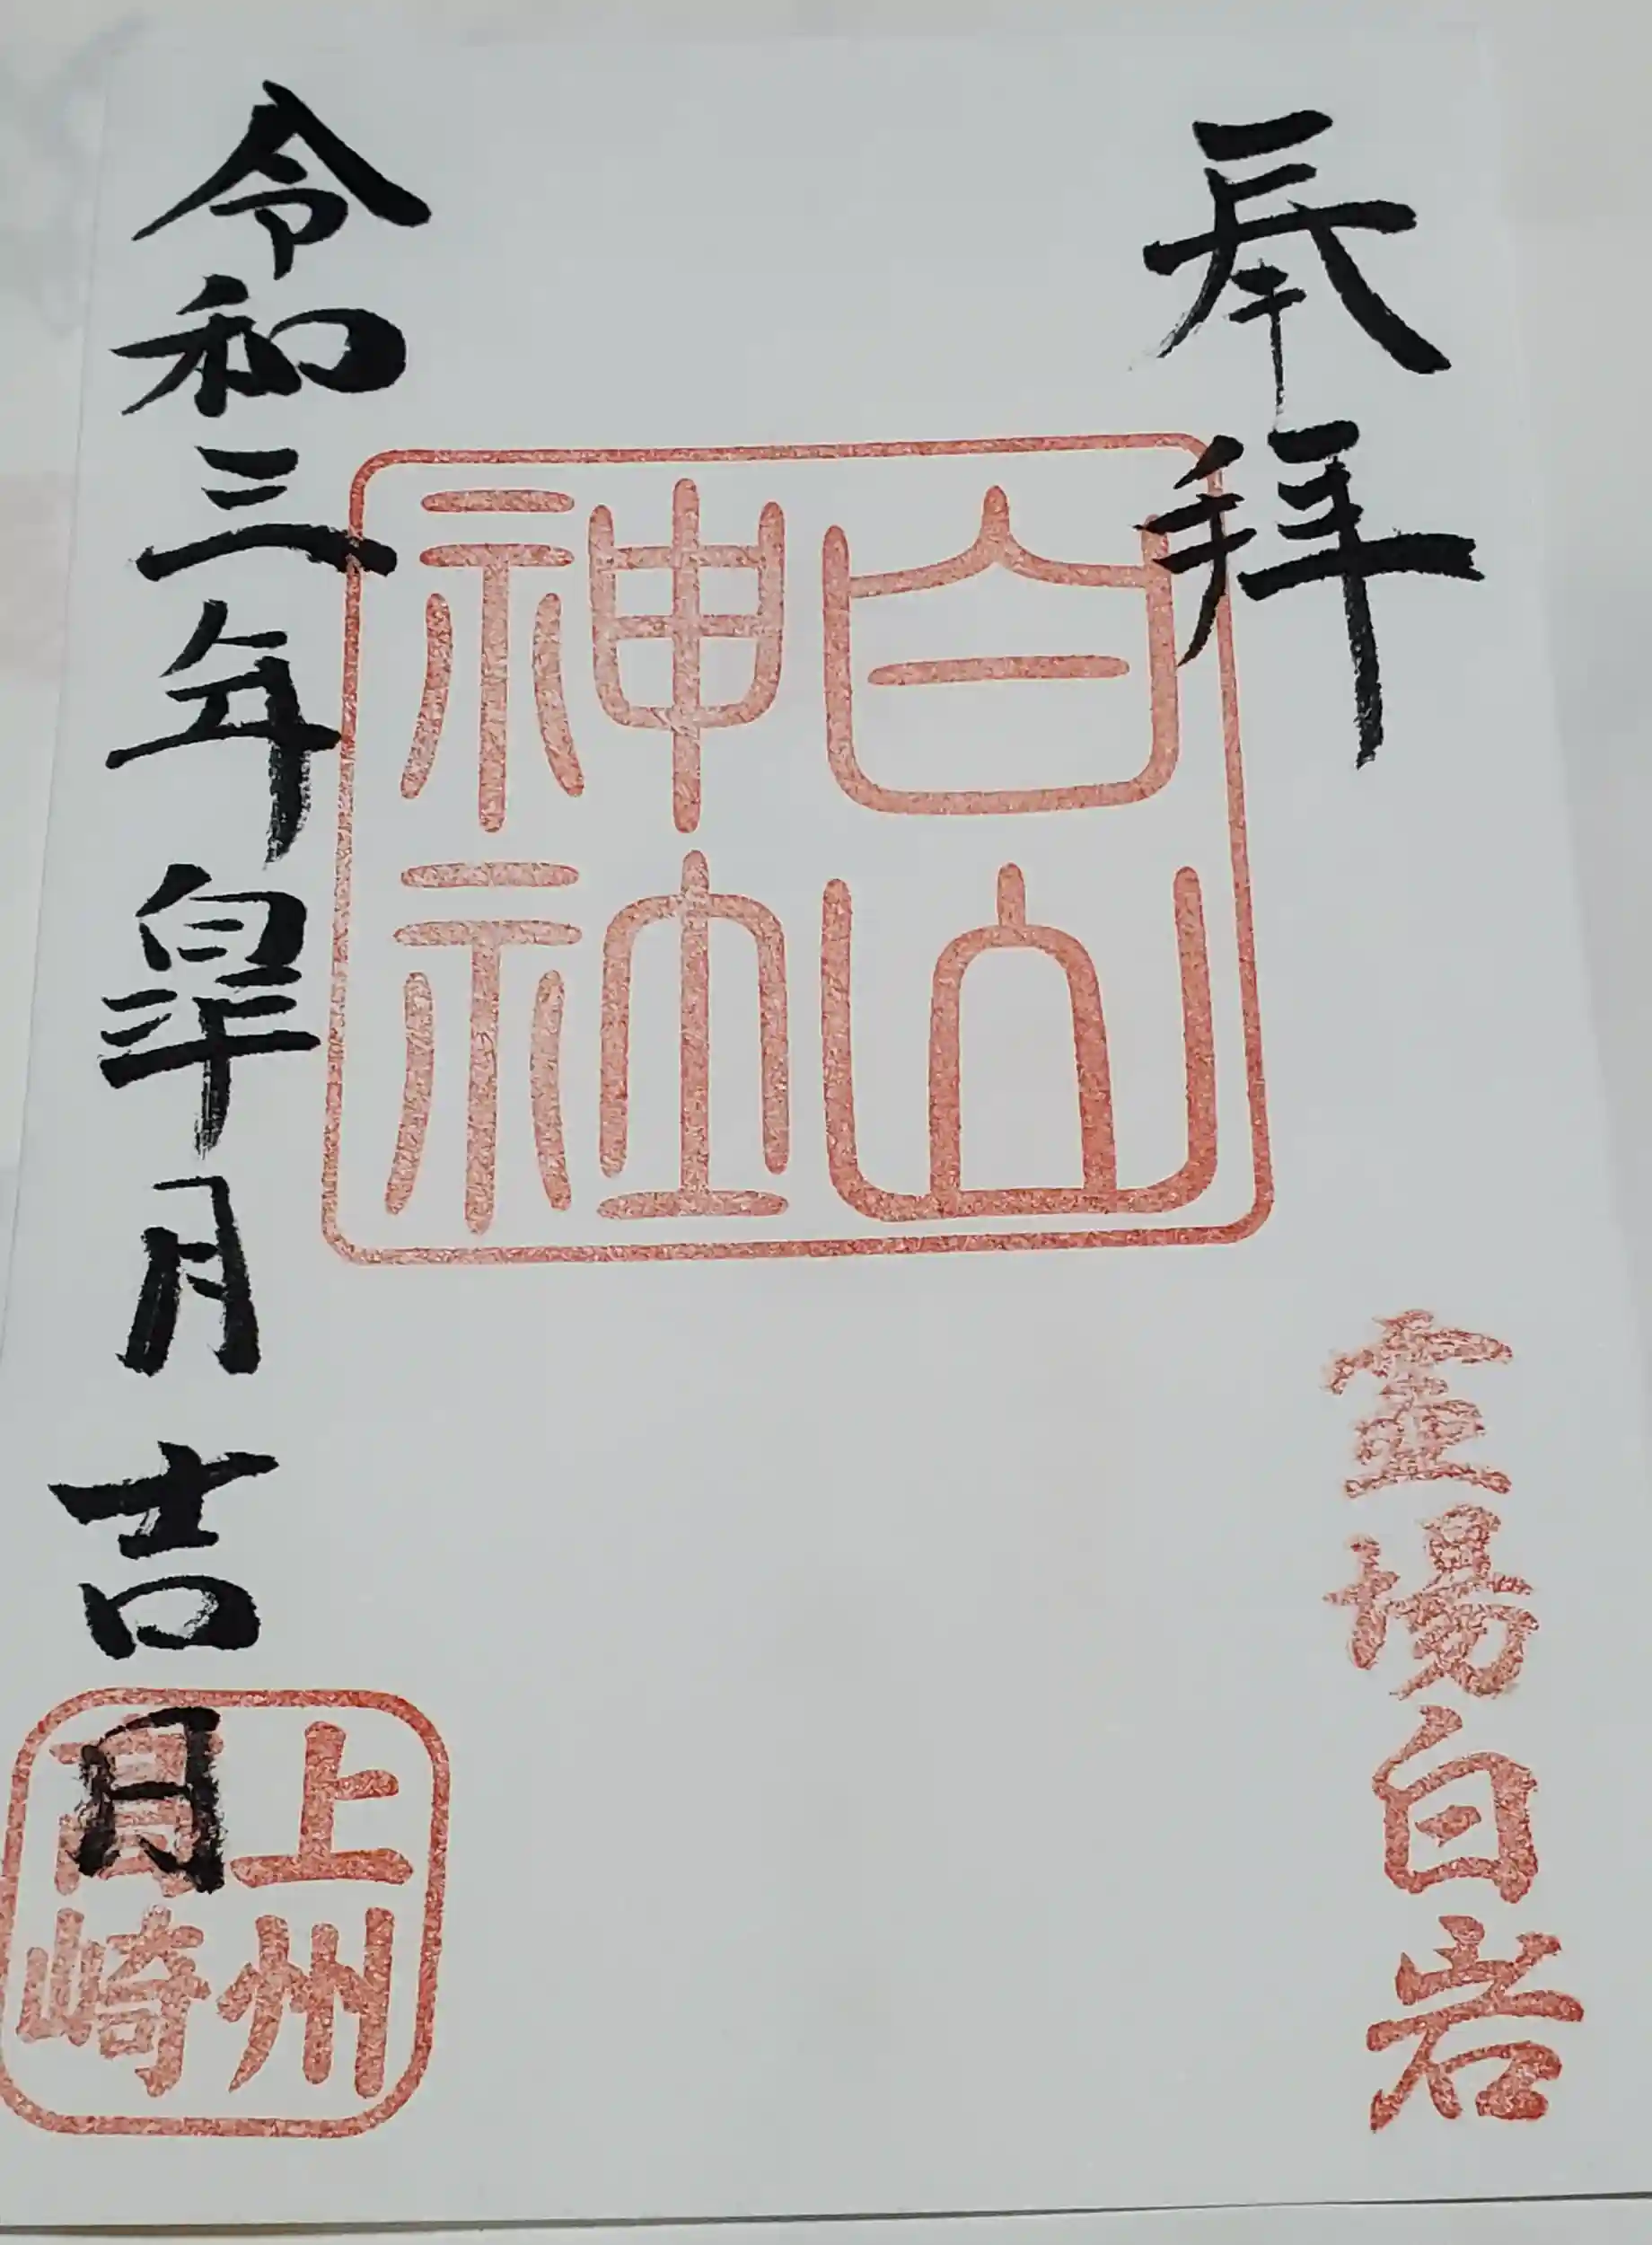 奉拝
霊場白岩
白山
神社
令和三年皐月吉日
上州
高崎